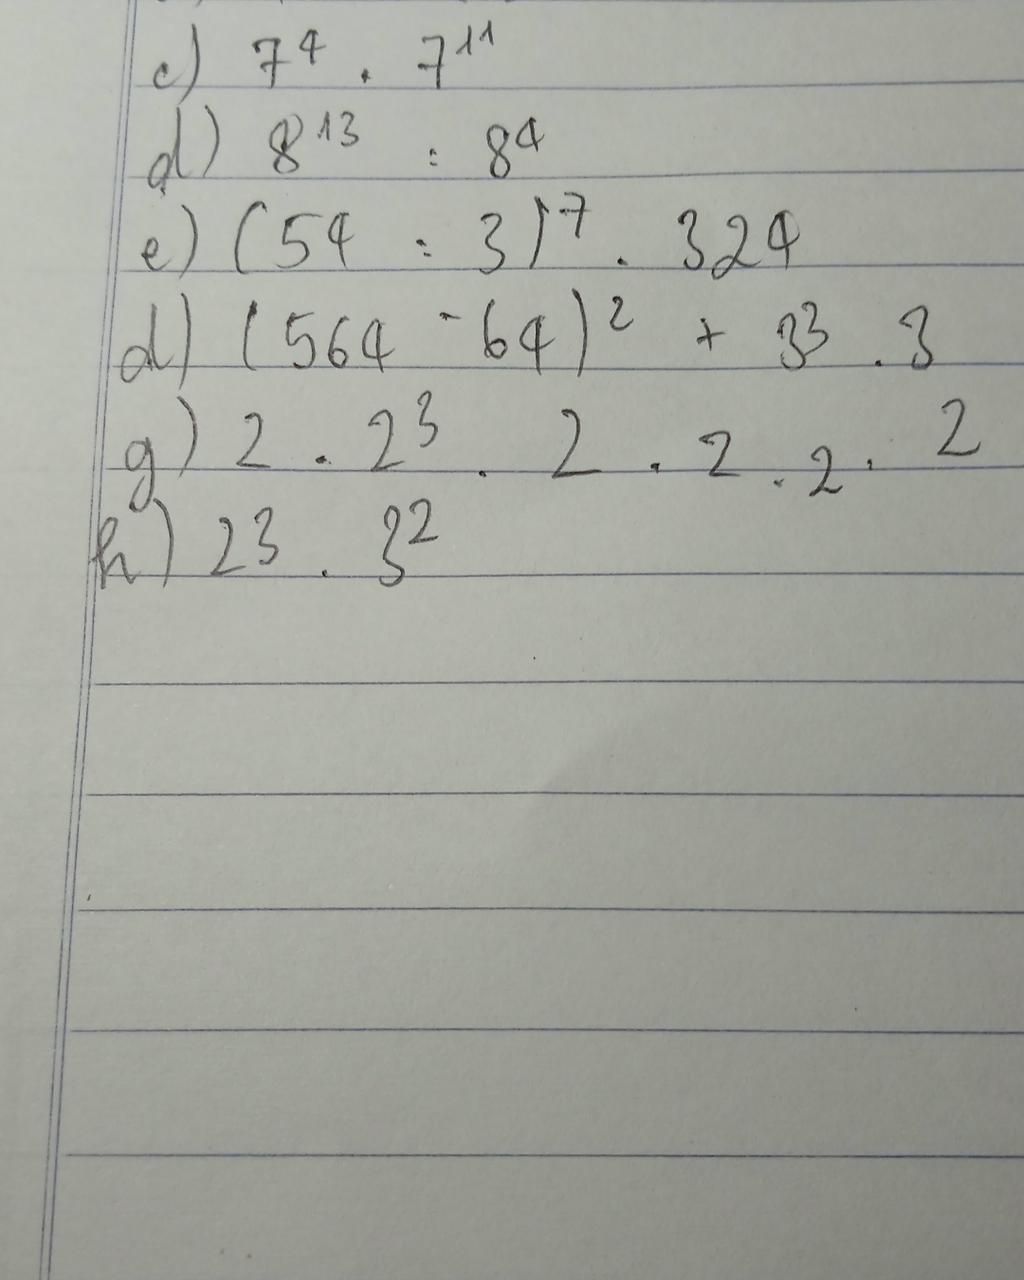 c) 7⁴ . 7¹¹
d) 8¹³ : 8⁴
e) (54 : 3)⁷ . 324
d) (564 - 64)² + 3³ . 3
g) 2 . 2³ . 2 . 2 . 2 . 2
h) 2³ . 3²